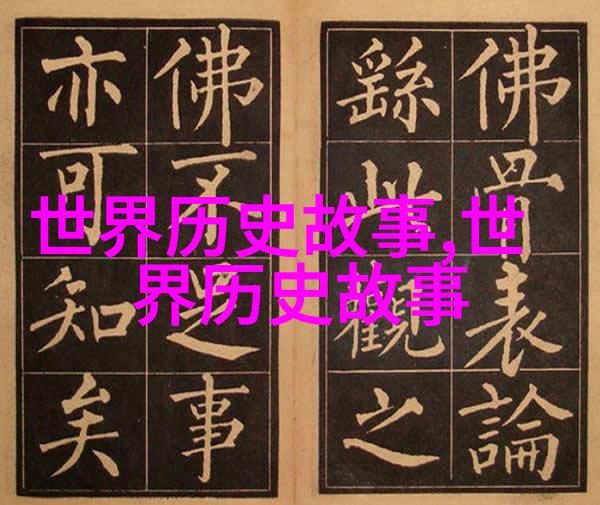 世界历史故事,世
界历史故事
佛骨表論
繇此觀之
佛不足事
亦可知矣